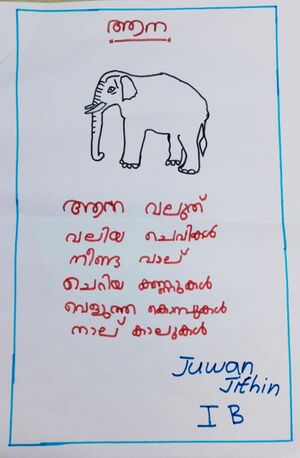 ആന
ആന വലുത്
വലിയ ചെവികൾ
നീണ്ട വാല്
ചെറിയ കണ്ണുകൾ
വെളുത്ത കൊമ്പുകൾ
നാല് കാലുകൾ
Juwan
Jithin
I B